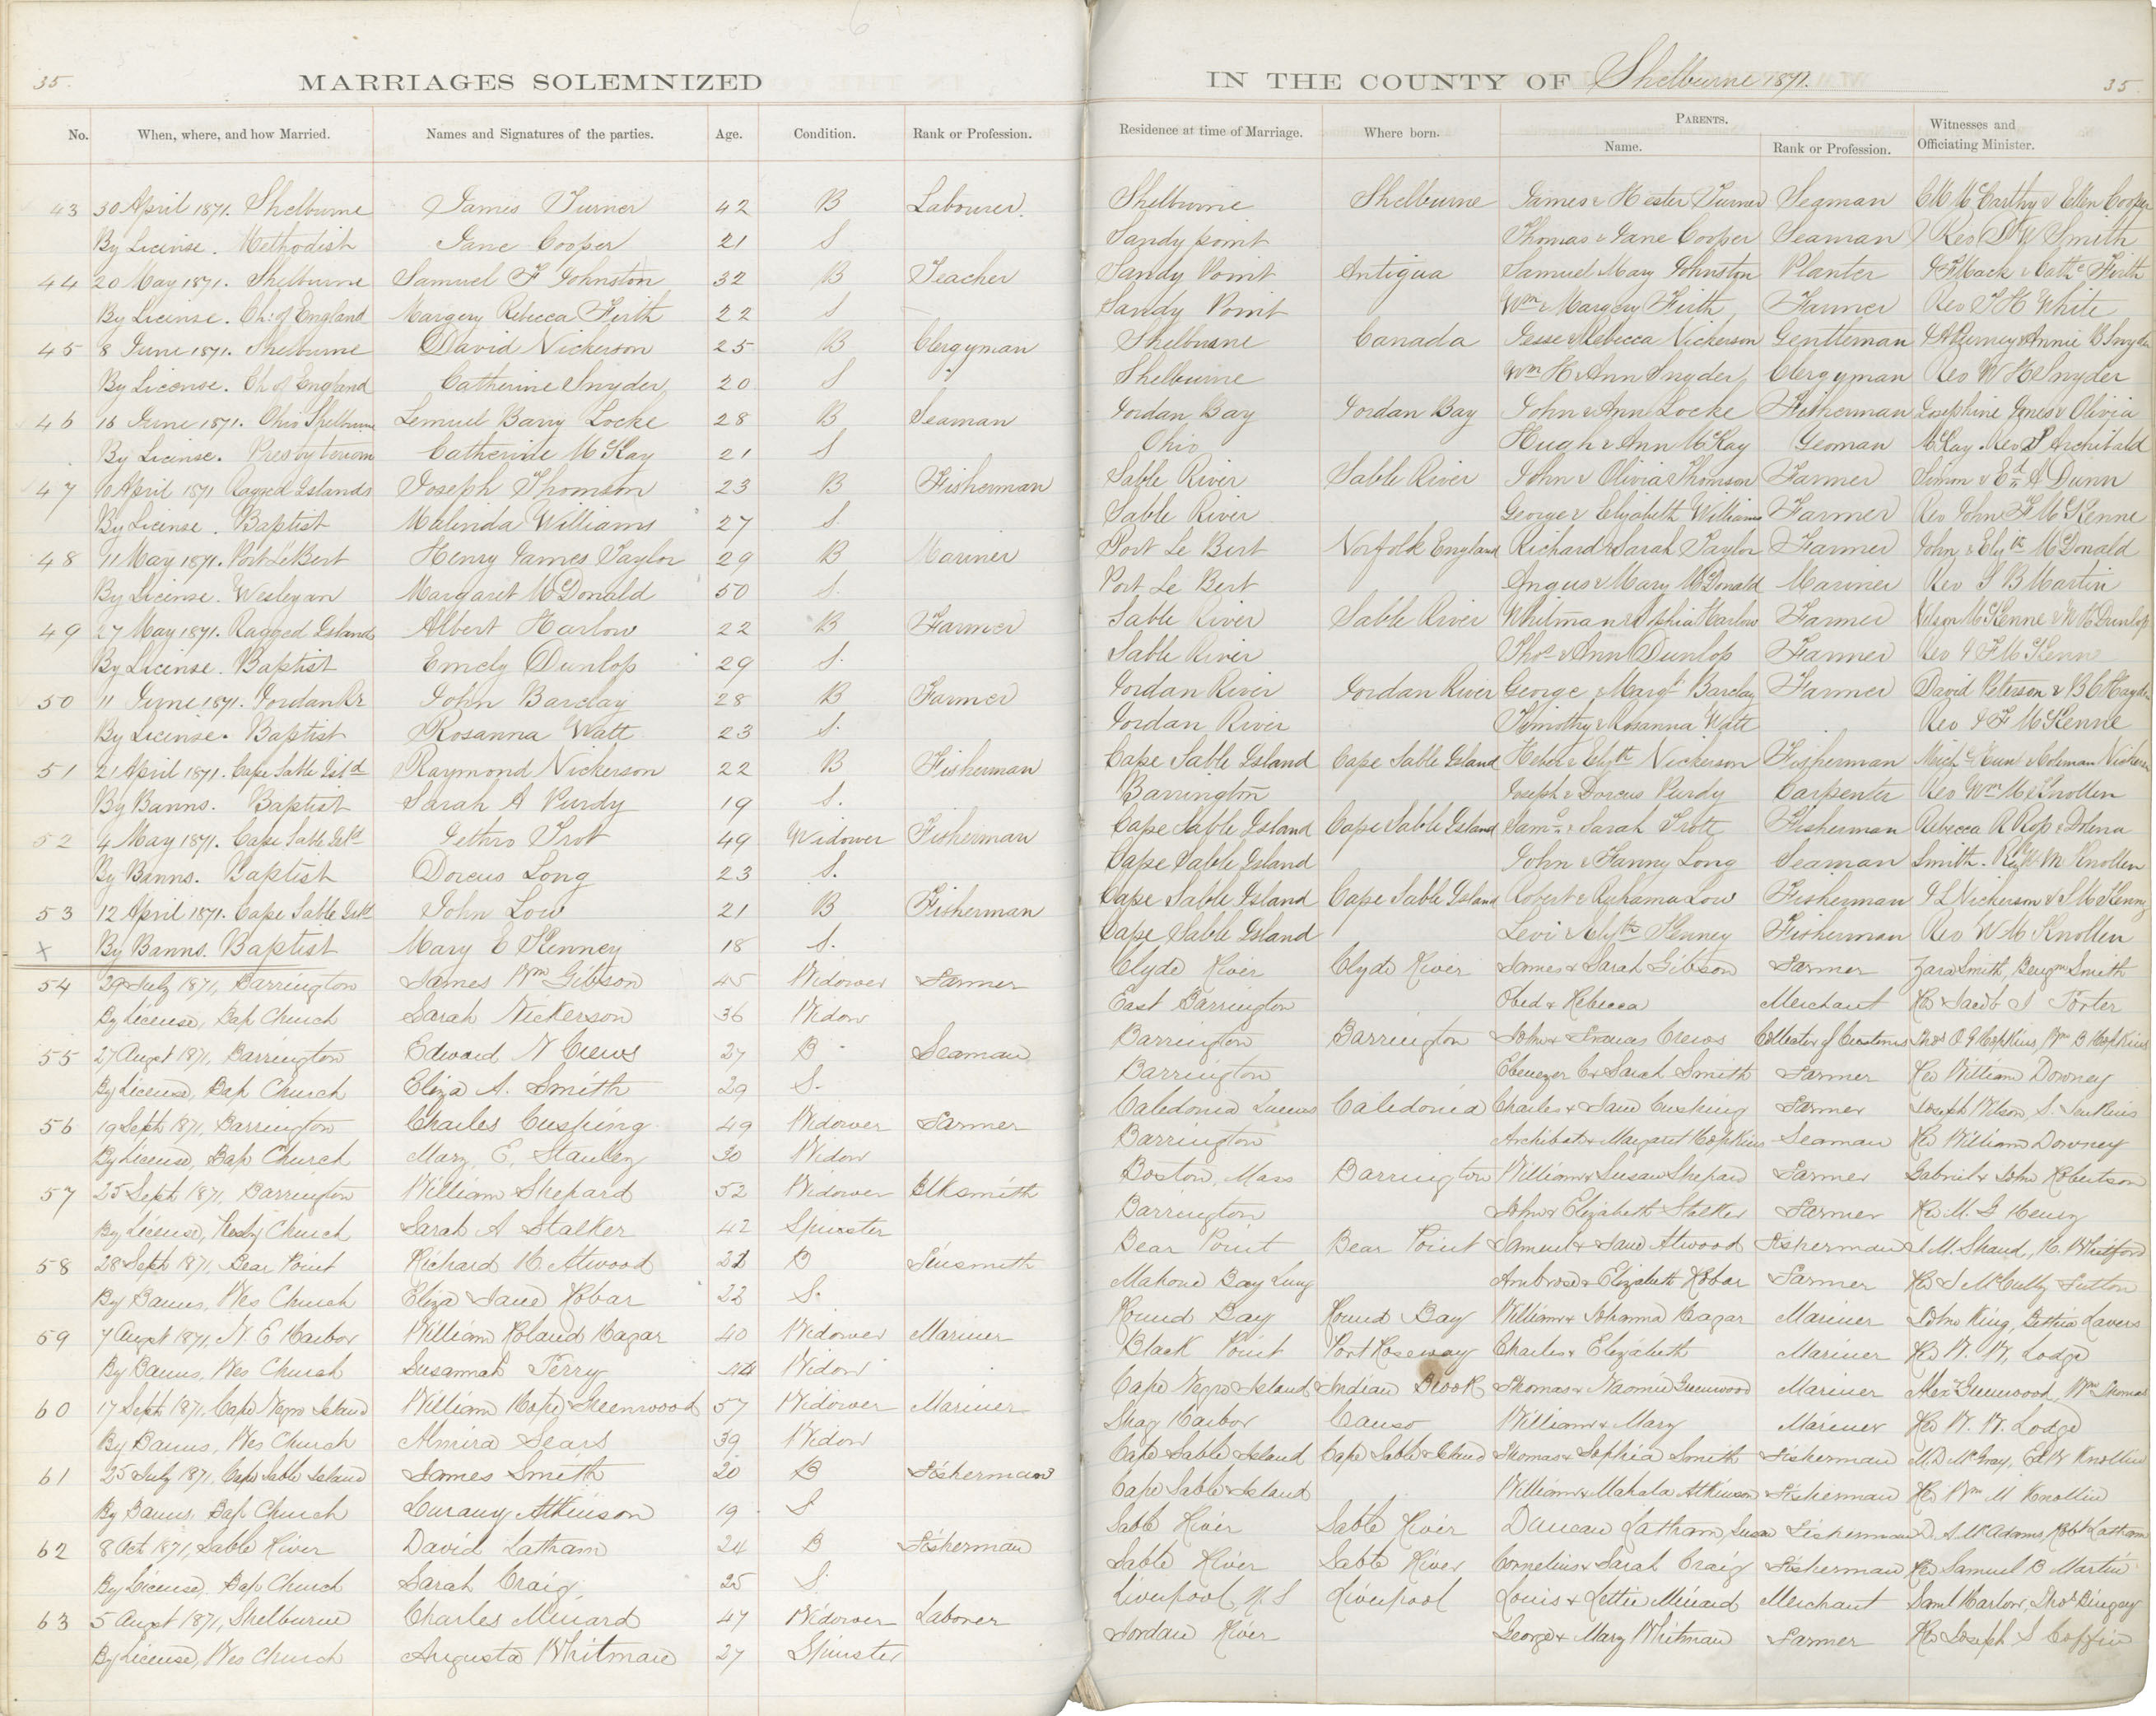 35 MARRIAGES SOLEMNIZED IN THE COUNTY OF Shelburne 1871. 35
No. When, where, and how Married. Names and Signatures of the parties. Age. Condition. Rank or Profession. Residence at time of Marriage. Where born. PARENTS. Name. Rank or Profession. Witnesses and Officiating Minister.
43 30 April 1871. Shelburne James Turner 42 B Labourer. Shelburne Shelburne James & Hester Turner Seaman McCarthy & Ellen Cooper
By License. Methodist Jane Cooper 21 S Sandy point Thomas & Jane Cooper Seaman Rev Smith
44 20 May 1871. Shelburne Samuel F Johnston 32 B Teacher Sandy Point Antigua Samuel Mary Johnston Planter Mack & Cathe Firth
By License. Ch: of England Margery Rebecca Firth 22 S Sandy Point Wm & Margery Firth Farmer Rev T H White
45 8 June 1871. Shelburne David Nickerson 25 B Clergyman Shelburne Canada Jesse & Rebecca Nickerson Gentleman & Annie B Snyder
By License. Ch of England Catherine Snyder 20 S Shelburne Wm H & Ann Snyder Clergyman Rev W H Snyder
46 18 June 1871. Ohio Shelburne Lemuel Barry Locke 28 B Seaman Jordan Bay Jordan Bay John & Ann Locke Fisherman Josephine Agnes & Olivia
By License. Presbyterian Catherine McKay 21 S Ohio Hugh & Ann McKay Yeoman McKay. Rev Archibald
47 10 April 1871 Ragged Islands Joseph Thomson 23 B Fisherman Sable River Sable River John & Olivia Thomson Farmer Simon & A Dunn
By License. Baptist Malinda Williams 27 S. Sable River George & Elizabeth Williams Farmer Rev John F McKenne
48 11 May 1871. Port Le Bert Henry James Taylor 29 B Mariner Port Le Bert Norfolk England Richard & Sarah Taylor Farmer John & Elizth McDonald
By License. Wesleyan Margaret McDonald 50 S. Port Le Bert Angus & Mary McDonald Mariner Rev S B Martin
49 27 May 1871. Ragged Island Albert Harlow 22 B Farmer Sable River Sable River Whitman & Harlow Farmer Nilson McKenne & W H Dunlop
By License. Baptist Emely Dunlop 29 S. Sable River Thos & Ann Dunlop Farmer Rev J F McKenne
50 11 June 1871. Jordan Rr John Barclay 28 B Farmer Jordan River Jordan River George & Margt Barclay Farmer David Peterson & Hayden
By License. Baptist Rosanna Watt 23 S. Jordan River Timothy & Rosanna Watt Rev J F McKenne
51 21 April 1871. Cape Sable Isld Raymond Nickerson 22 B Fisherman Cape Sable Island Cape Sable Island Heber & Elizth Nickerson Fisherman & Colman Nickerson
By Banns. Baptist Sarah A Purdy 19 S. Barrington Joseph & Dorcus Purdy Carpenter Rev Wm M Knollen
52 4 May 1871. Cape Sable Isld Jethro Trot 49 Widower Fisherman Cape Sable Island Cape Sable Island Saml & Sarah Trott Fisherman Rebecca R Ross & Dolena
By Banns. Baptist Dorcus Long 23 S. Cape Sable Island John & Fanny Long Seaman Smith. Rev W M Knollen
53 12 April 1871. Cape Sable Isld John Low 21 B Fisherman Cape Sable Island Cape Sable Island Robert & Ruhama Low Fisherman Nickerson & Kenny
x By Banns. Baptist Mary E Kenney 18 S. Cape Sable Island Levi & Elizth Kenney Fisherman Rev W M Knollen
54 29 July 1871, Barrington James Wm Gibson 45 Widower Farmer Clyde River Clyde River James & Sarah Gibson Farmer Zara Smith, Benjn Smith
By License, Bap Church Sarah Nickerson 36 Widow East Barrington Obed & Rebecca Merchant Rev Jacob I Porter
55 27 August 1871, Barrington Edward N Crews 27 B Seaman Barrington Barrington John & Frances Crews Collector of Customs Hopkins, Wm B Hopkins
By License, Bap Church Eliza A. Smith 29 S. Barrington Ebenezer C & Sarah Smith Farmer Rev William Downey
56 19 Sept 1871, Barrington Charles Cushing 49 Widower Farmer Caledonia Queens Caledonia Charles & Jane Cushing Farmer Joseph Wilson, S. Jenkins
By License, Bap Church Mary E. Stanley 30 Widow Barrington Archibald & Margaret Hopkins Seaman Rev William Downey
57 25 Sept 1871, Barrington William Shepard 52 Widower Blksmith Boston, Mass Barrington William & Susan Shepard Farmer Gabriel & John Robertson
By License, Presby Church Sarah A Stalker 42 Spinster Barrington John & Elizabeth Stalker Farmer Rev M. G Henry
58 28 Sept 1871, Bear Point Richard H. Atwood 21 B Tinsmith Bear Point Bear Point Samuel & Jane Atwood Fisherman J M. Shand, Whitford
By Banns, Wes Church Eliza Jane Hobar 22 S. Mahone Bay Lung Ambrose & Elizabeth Hobar Farmer Rev J McCully Fulton
59 7 August 1871, N. E Harbor William Roland Hagar 40 Widower Mariner Round Bay Round Bay William & Johanna Hagar Mariner John King, Bethia Lavers
By Banns, Wes Church Susannah Perry 44 Widow Black Point Port Roseway Charles & Elizabeth Mariner Rev W. W. Lodge
60 17 Sept 1871, Cape Negro Island William Hope Greenwood 57 Widower Mariner Cape Negro Island Indian Brook Thomas & Naomie Greenwood Mariner Alex Greenwood, Wm Thomas
By Banns, Wes Church Almira Sears 39 Widow Shag Harbor Canso William & Mary Mariner Rev W. W. Lodge
61 25 July 1871, Cape Sable Island James Smith 20 B Fisherman Cape Sable Island Cape Sable Island Thomas & Sophia Smith Fisherman M. D. McGray, Ed W Knollin
By Banns, Bap Church Curany Atkinson 19 S Cape Sable Island William & Mahala Atkinson Fisherman Rev Wm M Knollin
62 8 Oct 1871, Sable River David Latham 24 B Fisherman Sable River Sable River Duncan Latham, Susan Fisherman McAdams, Robt Latham
By License, Bap Church Sarah Craig 25 S. Sable River Sable River Cornelius & Sarah Craig Fisherman Rev Samuel B Martin
63 5 August 1871, Shelburne Charles Minard 47 Widower Laborer Liverpool, N. S Liverpool Louis & Lettie Minard Merchant Saml Harlow, Thos Bingay
By License, Wes Church Augusta Whitman 27 Spinster Jordan River George & Mary Whitman Farmer Rev Joseph S Coffin